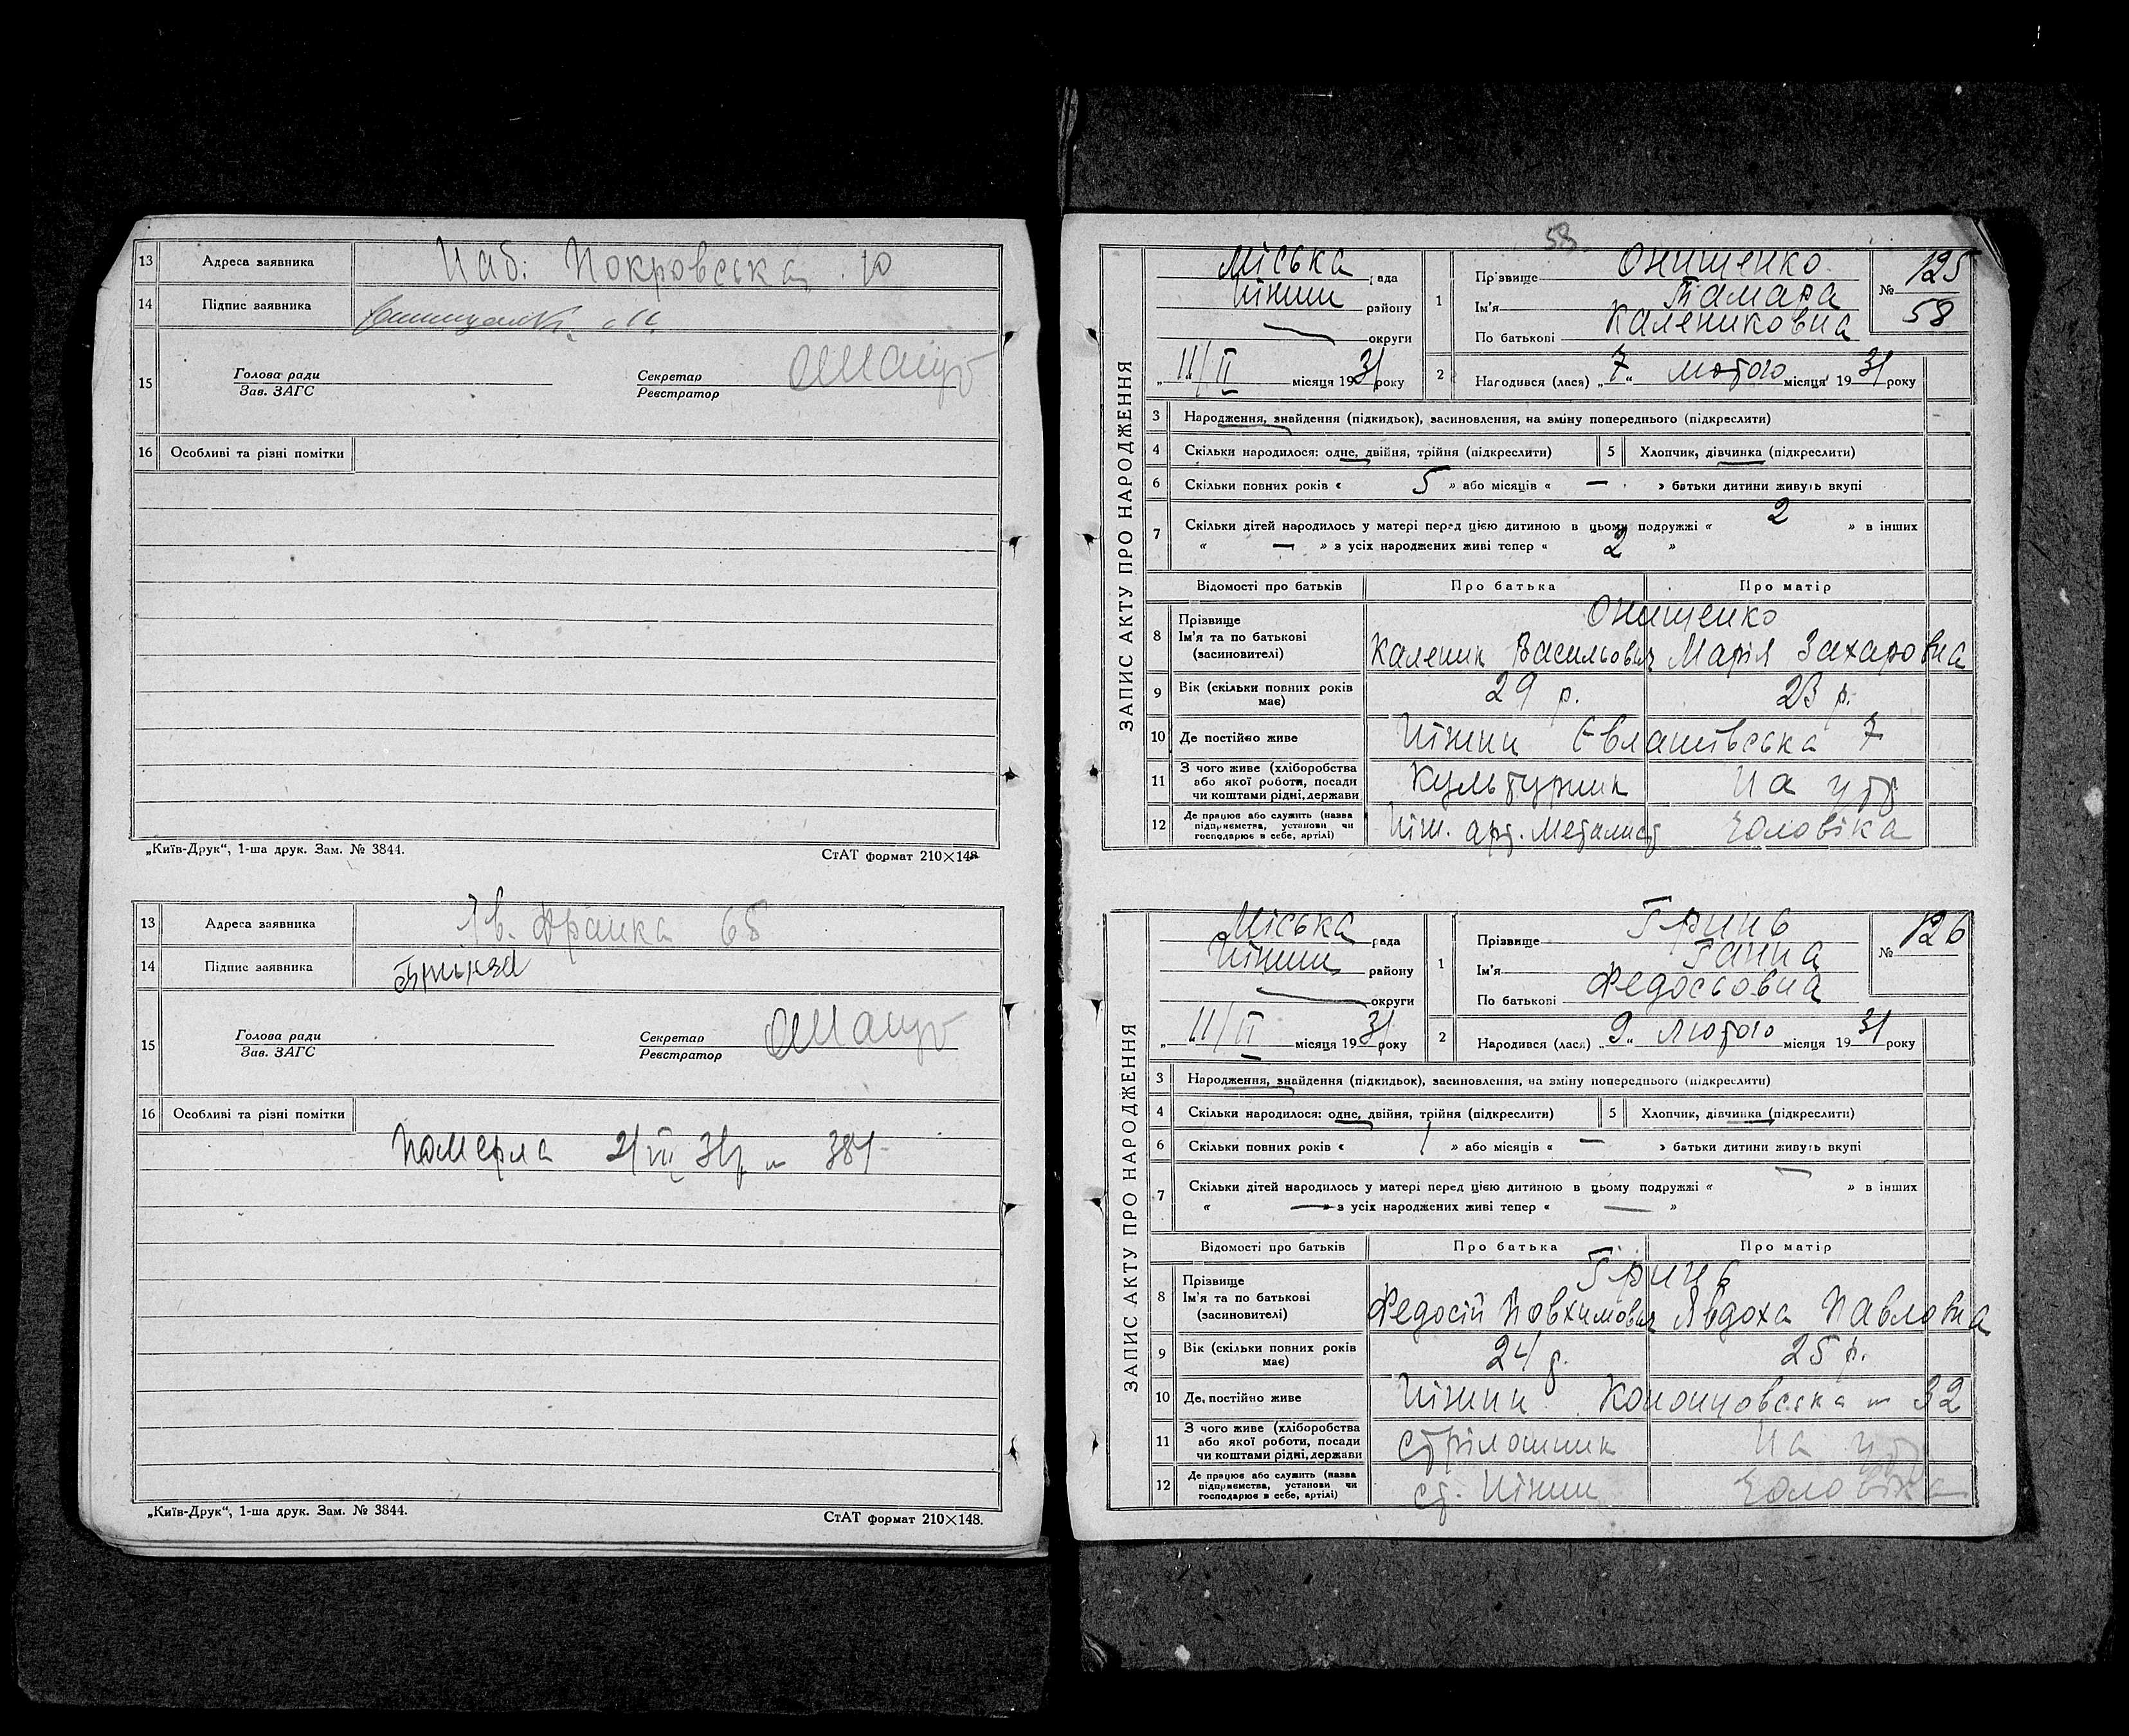 13 Адреса заявника Наб. Покровська 10
14 Підпис заявника
15 Голова ради Секретар
Зав. ЗАГС Реєстратор
16 Особливі та різні помітки
„Київ-Друк“, 1-ша друк. Зам. № 3844. СтАТ формат 210×148
13 Адреса заявника Ів. Франка 65
14 Підпис заявника
15 Голова ради Секретар
Зав. ЗАГС Реєстратор
16 Особливі та різні помітки
Померла 21/VII 31р № 384
„Київ-Друк“, 1-ша друк. Зам. № 3844. СтАТ формат 210×148.
58
ЗАПИС АКТУ ПРО НАРОДЖЕННЯ
Міська рада
Ніжин району
округи
„ 11/II місяця 1931 року
1 Прізвище Онищенко
Ім'я Тамара
По батькові Калениковна
№ 125
58
2 Народився (лася) „7“ лютого місяця 1931 року
3 Народження, знайдення (підкидьок), засиновлення, на зміну попереднього (підкреслити)
4 Скільки народилося: одне, двійня, трійня (підкреслити) 5 Хлопчик, дівчинка (підкреслити)
6 Скільки повних років « 5 » або місяців « — » батьки дитини живуть вкупі
7 Скільки дітей народилось у матері перед цією дитиною в цьому подружжі « 2 » в інших
« — » з усіх народжених живі тепер « 2 »
Відомості про батьків Про батька Про матір
8 Прізвище Ім'я та по батькові (засиновителі) Онищенко
Каленик Васильович Марія Захаровна
9 Вік (скільки повних років має) 29 р. 23 р.
10 Де постійно живе Ніжин Євлашівська 7
11 З чого живе (хліборобства або якої роботи, посади чи коштами рідні, держави Культурник На утр
12 Де працює або служить (назва підприємства, установи чи господарює в себе, артілі) Ніж. арт. Металист Чоловіка
ЗАПИС АКТУ ПРО НАРОДЖЕННЯ
Міська рада
Ніжин району
округи
„ 11/II місяця 1931 року
1 Прізвище Гринь
Ім'я Ганна
По батькові Федосьовна
№ 126
2 Народився (лася) „9“ лютого місяця 1931 року
3 Народження, знайдення (підкидьок), засиновлення, на зміну попереднього (підкреслити)
4 Скільки народилося: одне, двійня, трійня (підкреслити) 5 Хлопчик, дівчинка (підкреслити)
6 Скільки повних років « 1 » або місяців « — » батьки дитини живуть вкупі
7 Скільки дітей народилось у матері перед цією дитиною в цьому подружжі « — » в інших
« — » з усіх народжених живі тепер « — »
Відомості про батьків Про батька Про матір
8 Прізвище Ім'я та по батькові (засиновителі) Гринь
Федосій Явдоха Павловна
9 Вік (скільки повних років має) 24 р. 25 р.
10 Де постійно живе Ніжин № 32
11 З чого живе (хліборобства або якої роботи, посади чи коштами рідні, держави стрілошник На утр
12 Де працює або служить (назва підприємства, установи чи господарює в себе, артілі) ст. Ніжин Чоловіка